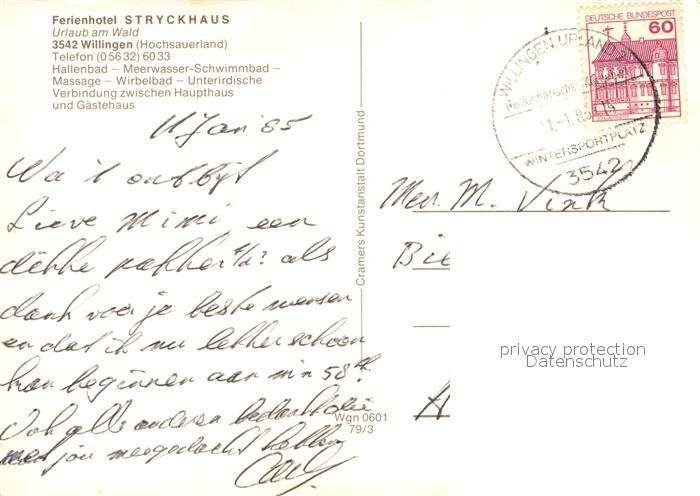 Ferienhotel STRYCKHAUS
Urlaub am Wald
3542 Willingen (Hochsauerland)
Telefon (05632) 6033
Hallenbad – Meerwasser-Schwimmbad –
Massage – Wirbelbad – Unterirdische
Verbindung zwischen Haupthaus
und Gästehaus
11 Jan 85
ontbijt
Lieve Mimi, een
dikke pakkerd als
dank voor je beste wensen
en dat ik nu lekker schoon
kan beginnen aan m'n 58e
Ook alle anderen bedankt die
met jou meegedacht hebben
Carl
Cramers Kunstanstalt Dortmund
Wgn 0601
79/3
DEUTSCHE BUNDESPOST
60
WILLINGEN, UPLAND
Heilklimatischer Kurort
WINTERSPORTPLATZ
3542
Mev. M. Vink
privacy protection
Datenschutz